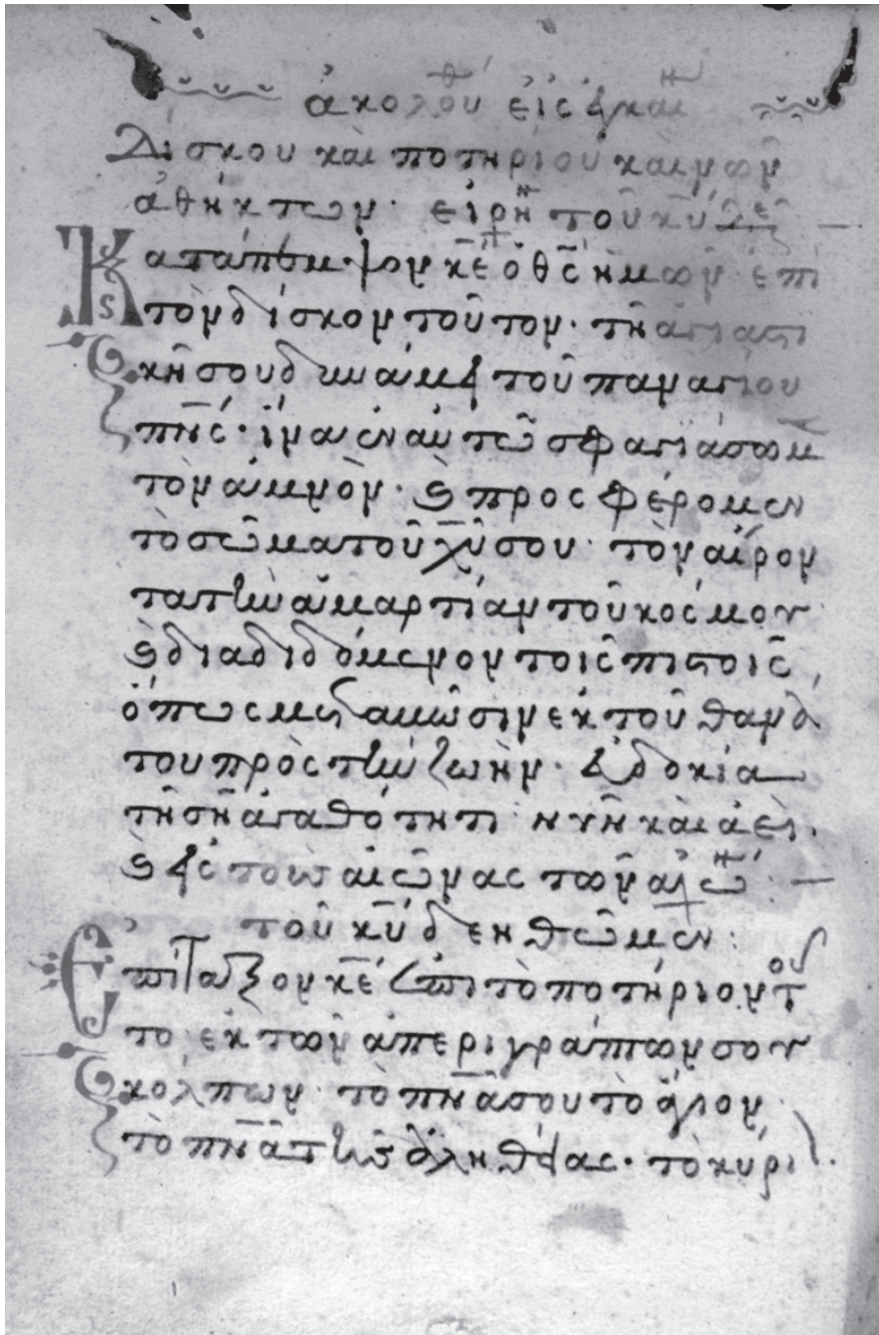 ἀκολου εἰς ἐγκαι
Δίσκου καὶ ποτηρίου καινῶν
ἀθήκτων· εἰρη τοῦ κυ λε
Κατάπεμψον κε ὁ θς ἡμῶν ἐπὶ
τὸν δίσκον τοῦτον· τῆ ἁγιαστι
κῆ σου δυνάμει τοῦ παναγίου
πνς· ἵνα ἐν αὐτῶ σφαγιάσωμ
τὸν ἀμνὸν· καὶ προσφέρομεν
τὸ σῶμα τοῦ χυ σου· τὸν αἴρον
τα τὴν ἁμαρτίαν τοῦ κόσμου
καὶ διαδιδόμενον τοῖς πιστοῖς,
ὅπως μεταβῶσιν ἐκ τοῦ θανά
του πρὸς τὴν ζωὴν· εὐδοκία
τῆ σῆ ἀγαθότητι νῦν καὶ ἀεὶ.
καὶ εἰς τοὺς αἰῶνας τῶν αἰώ
τοῦ κυ δεηθῶμεν:
Ἐπίταξον κε ἐπὶ τὸ ποτήριον τοῦ
το ἐκ τῶν ἀπεριγράπτων σου
κόλπων· τὸ πνα σου τὸ ἅγιον
τὸ πνα τῆς ἀληθείας· τὸ κύρι